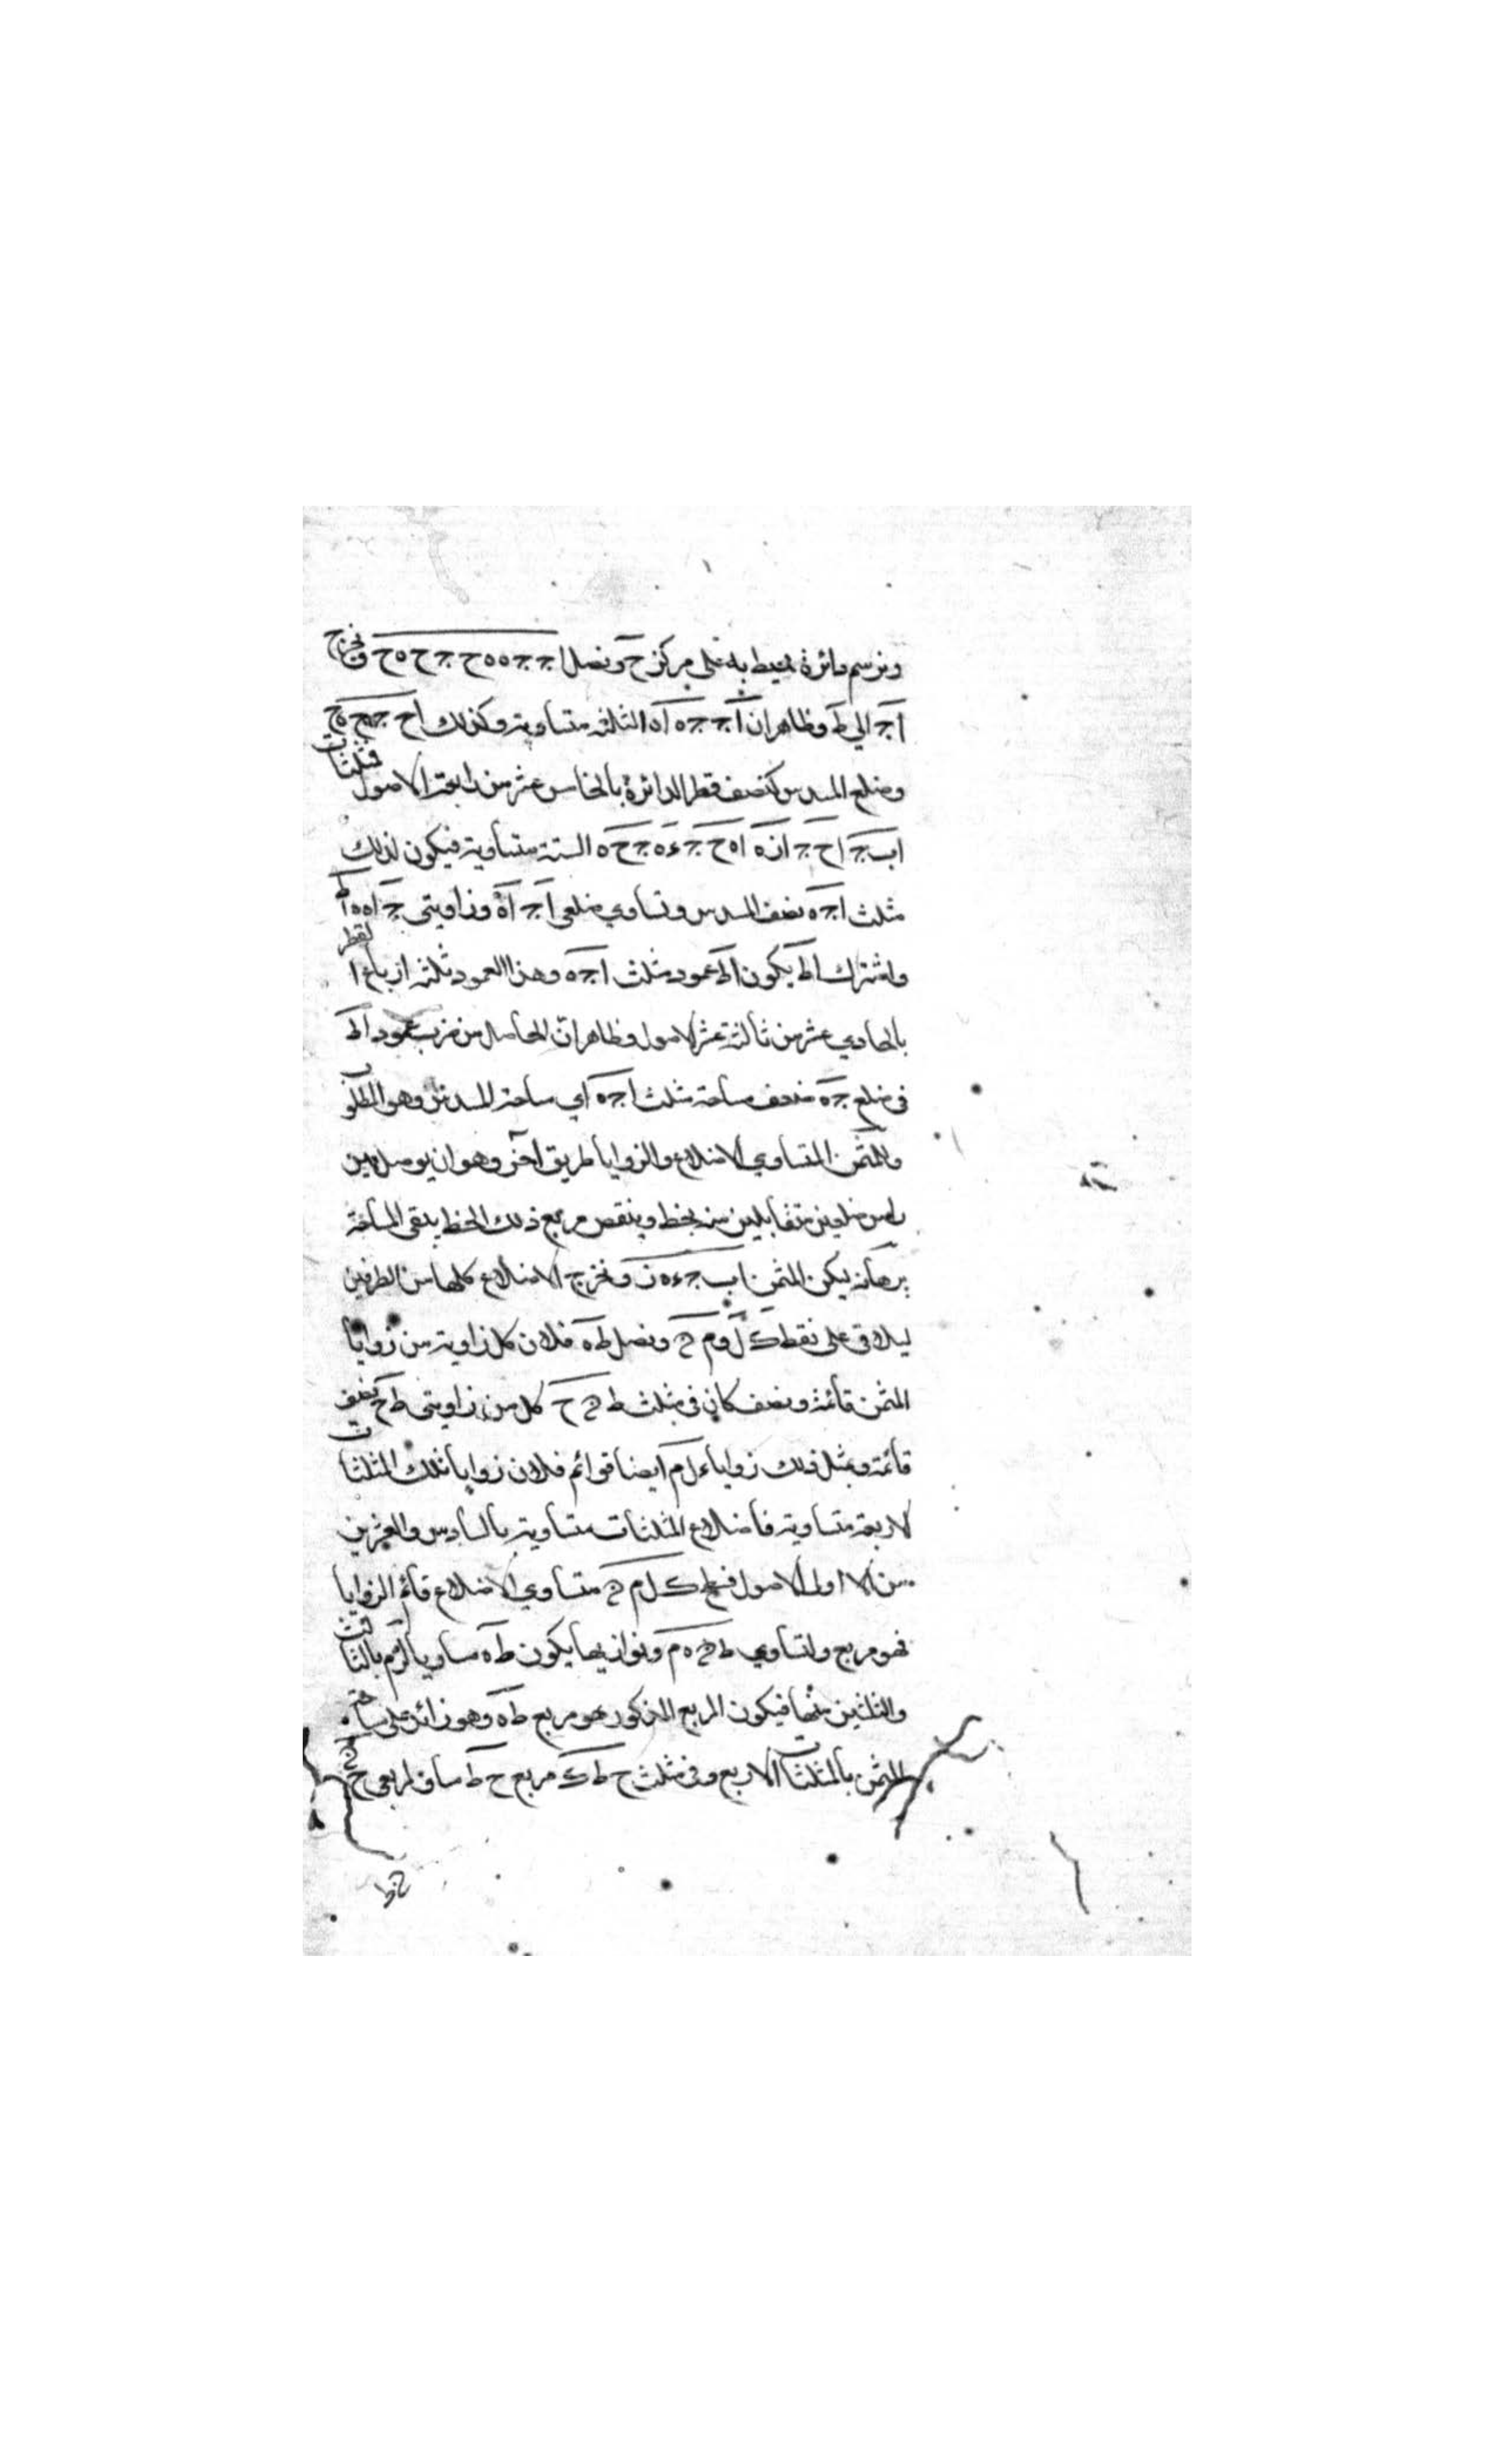 ونرسم دائرة تحيط به على مركز ح ونصل ا جـ جـ ه ه ح جـ ح ه ح ونخرج
ا جـ الى ط وظاهر ان ا جـ جـ ه ا ه الثلثة متساوية وكذلك ا ح جـ ح ه ح
وضلع المسدس كنصف قطر الدائرة بالخامس عشر من رابعة الاصول فمثلثات
ا ب جـ ا ح جـ ا ز ه ا ه ح جـ ء ه جـ ح ه الستة متساوية فيكون لذلك
مثلث ا جـ ه نصف المسدس وتساوي ضلعي ا جـ ا ه وزاويتي جـ ا ه ه ا ط
واشتراك ا ط يكون ا ط عمود مثلث ا جـ ه وهذا العمود ثلثة ارباع القطر
بالحادي عشر من ثالثة عشر الاصول وظاهر ان الحاصل من ضرب عمود ا ط
في ضلع جـ ه ضعف مساحة مثلث ا جـ ه اي مساحة المسدس وهو المطلوب
وللمثمن المتساوي الاضلاع والزوايا طريق آخر وهو ان يوصل بين
راس ضلعين متقابلين منه بخط وينقص مربع ذلك الخط يبقى المساحة
برهانه ليكن المثمن ا ب جـ ء ه ز ونخرج الاضلاع كلها من الطرفين
ليلاقى على نقط ك ل و م ح ونصل ط ه فلان كل زاوية من زوايا
المثمن قائمة ونصف كان في مثلث ط ح كل من زاويتى ط ح نصف
قائمة وبمثل ذلك زوايا ء ل م ايضا قوائم فلان زوايا تلك المثلثات
الاربعة متساوية فاضلاع المثلثات متساوية بالسادس والعشرين
من الاولى الاصول فسطح ك ل م ح متساوي الاضلاع قائم الزوايا
فهو مربع ولتساوي ط ح ه م وتوازيهما يكون ط ه مساويا ل م بالثالث
والثلثين منها فيكون المربع المذكور هو مربع ط ه وهو زائد على مساحة
المثمن بالمثلثات الاربع وفي مثلث ح ط ك مربع ح ط مساو لمربعي ح ك